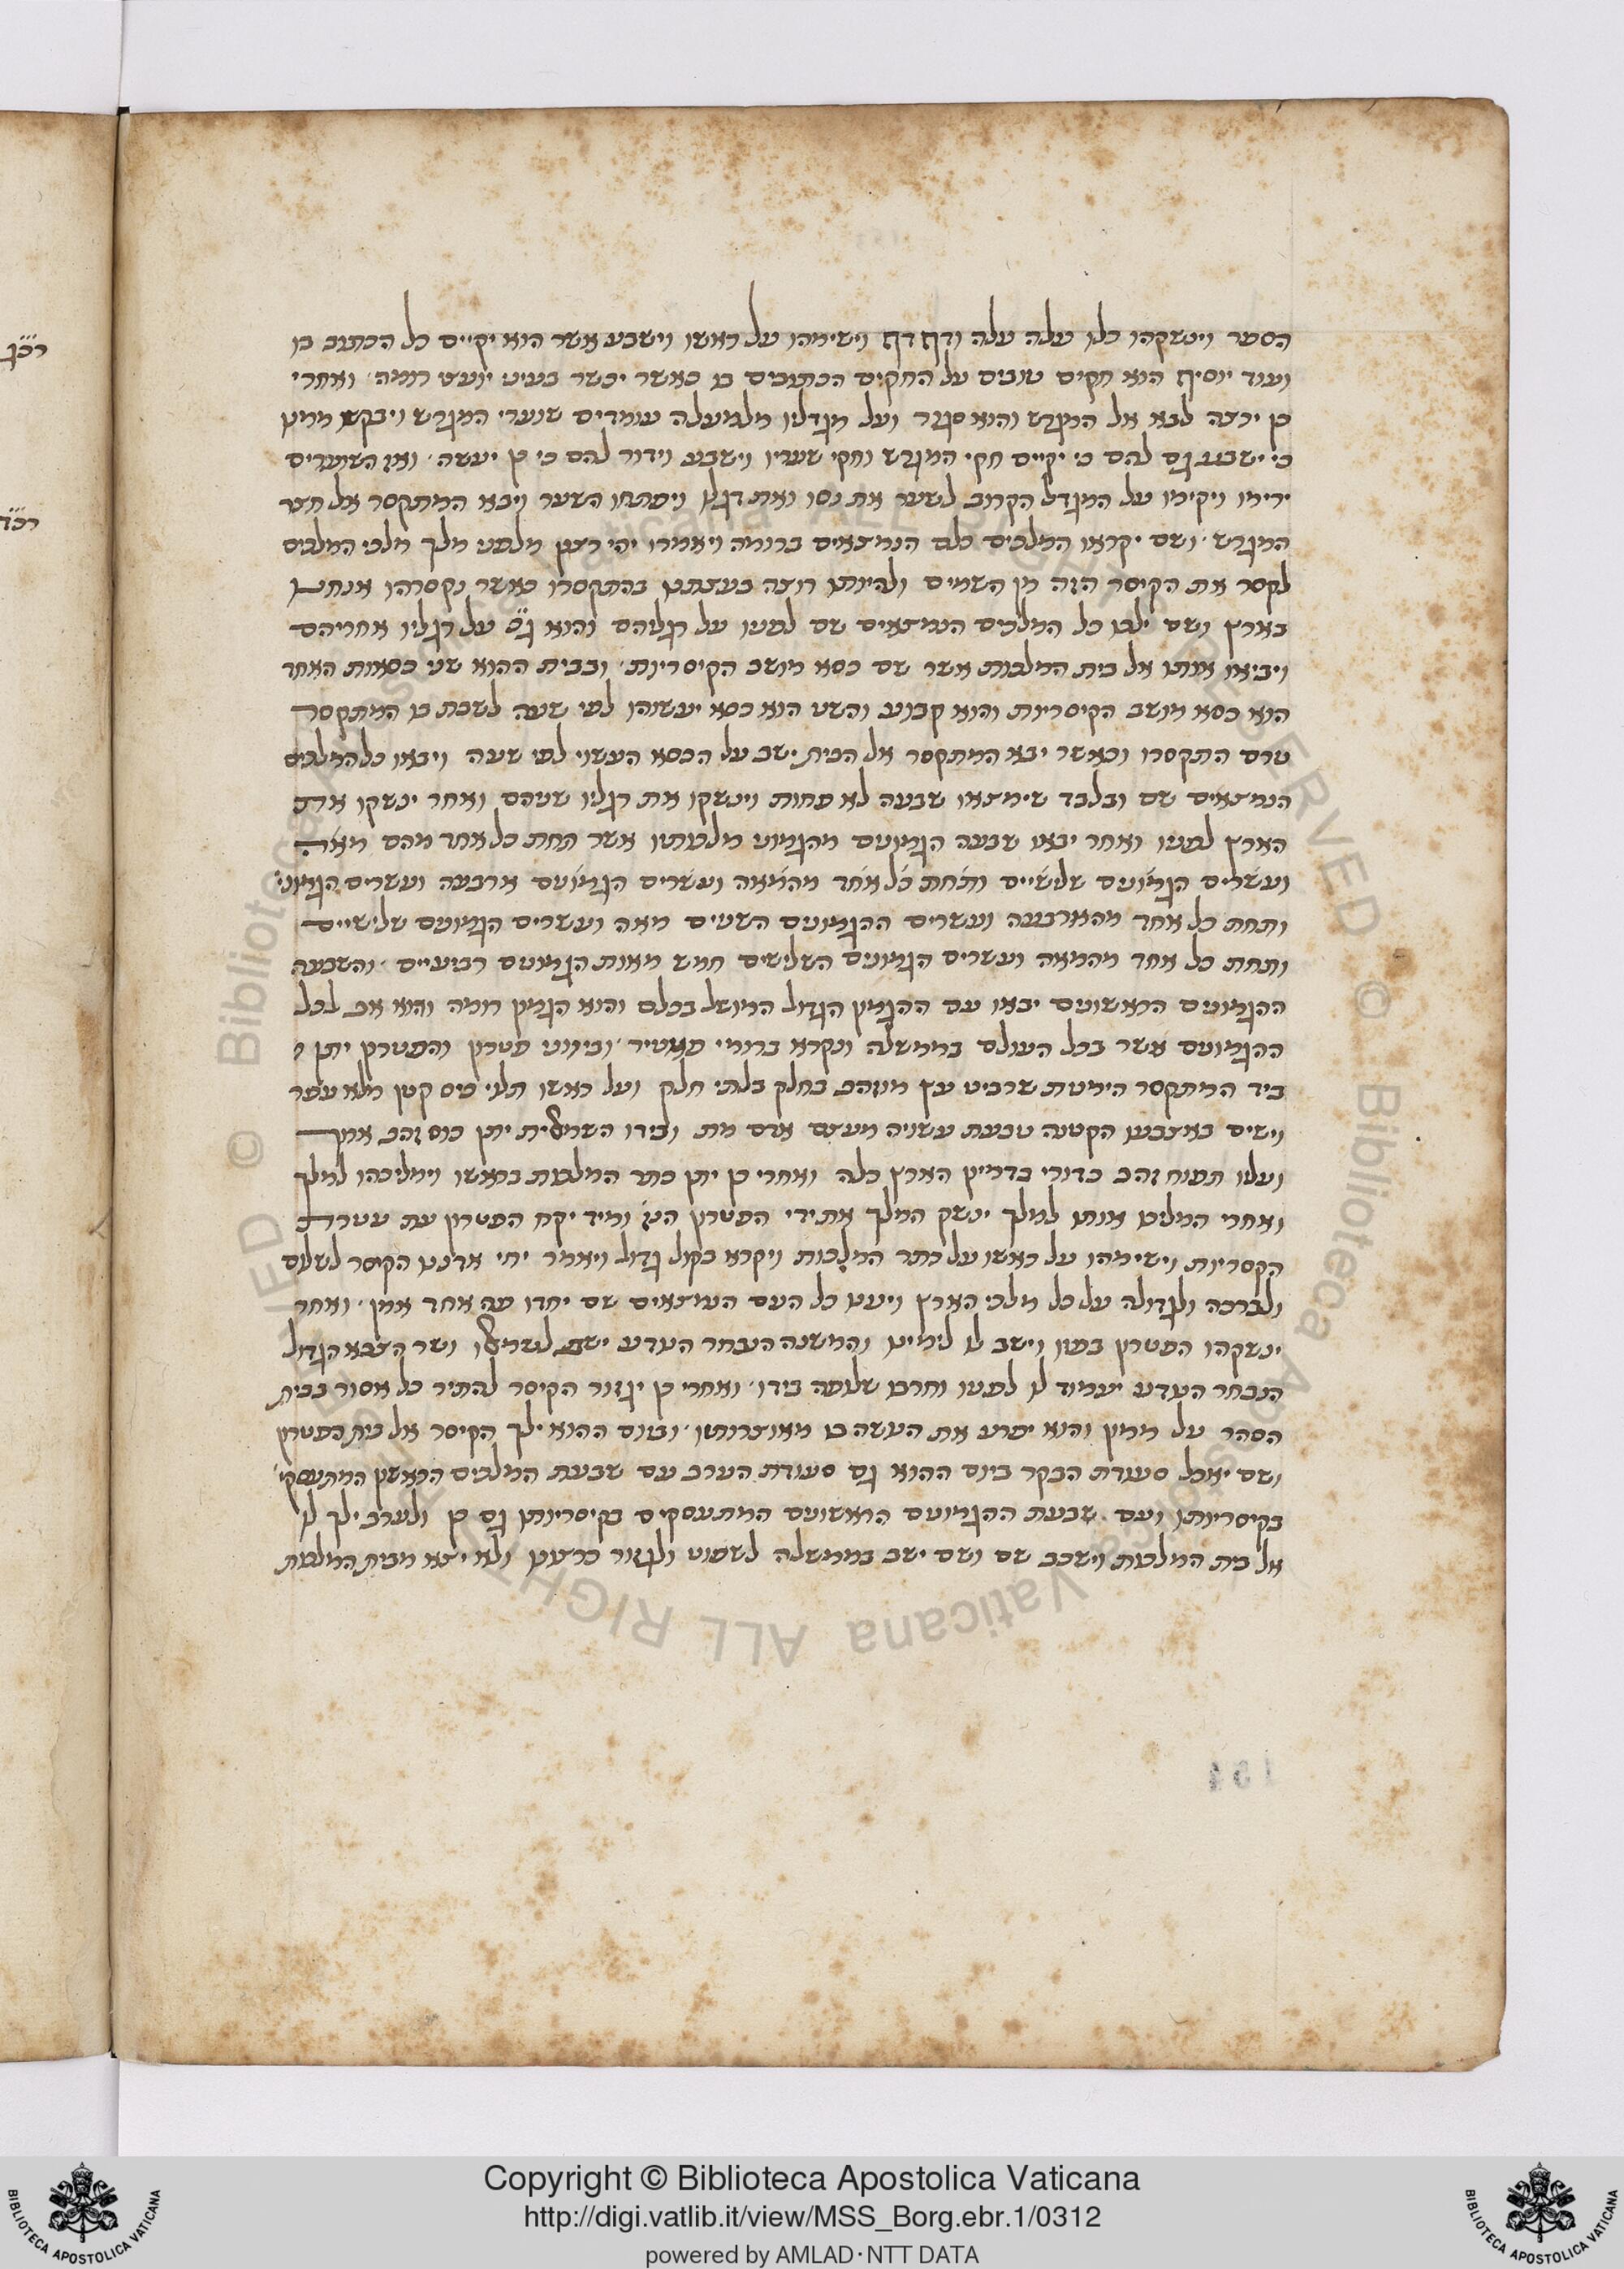 הספר וינשקהו כלו עלה עלה ודף דף וישימהו על ראשו וישבע אשר הוא יקיים כל הכתוב בו
ועוד יוסיף הוא חקים טובים על החקים הכתובים בו כאשר יכשר בעיני יועצי רומה ואחרי
כן ירצה לבא אל המגרש והוא סגור ועל מגדליו מלמעלה עומדים שוערי המגרש ויבקש ממנו
כי ישבע גם להם כי יקיים חקי המגרש וחקי שעריו וישבע וידור להם כי כן יעשה ואז השוערים
ירימו ויקימו על המגדל הקרוב לשער את נסו ואת דגלו ויפתחו השער ויבא המתקסר אל חצר
המגרש ושם יקראו המלכים כלם הנמצאים ברומה ויאמרו יהי רצון מלפני מלך מלכי המלכים
לקסר את הקיסר הזה מן השמים ולהיותו רוצה בעצתנו בהתקסרו כאשר נקסרהו אנחנו
בארץ ושם ילכו כל המלכים הנמצאים שם לפניו על רגליהם והוא גם על רגליו אחריהם
ויביאו אותו אל בית המלכות אשר שם כסא מושב הקיסריות ובבית ההוא שני כסאות האחד
הוא כסא מושב הקיסריות והוא קבוע והשני הוא כסא יעשוהו לפי שעה לשבת בו המתקסר
טרם התקסרו וכאשר יבא המתקסר אל הבית ישב על הכסא העשוי לפי שעה ויבאו כל המלכים
הנמצאים שם ובלבד שימצאו שבעה לא פחות וינשקו את רגליו שניהם ואחר ינשקו את
הארץ לפניו ואחר יבאו שבעה הגמונים מהגמוני מלכותו אשר תחת כל אחד מהם מאה
ועשרים הגמונים שלישיים ותחת כל אחד מהמאה ועשרים הגמונים ארבעה ועשרים הגמוני
ותחת כל אחד מהארבעה ועשרים ההגמונים השניים מאה ועשרים הגמונים שלישיים
ותחת כל אחד מהמאה ועשרים הגמונים השלישים חמש מאות הגמונים רביעיים והשבעה
ההגמונים הראשונים יבאו עם ההגמון הגדול המושל בכלם והוא הגמון רומה והוא אב לכל
ההגמונים אשר בכל העולם בממשלה ונקרא ברומי ויתן
ביד המתקסר הימנית שרביט עץ מוזהב בחלק בלתי חלק ועל ראשו תלוי כיס קטן מלא עפר
וישים באצבעו הקטנה טבעת עשויה מעצם אדם מת ובידו השמלית יתן כוס זהב אחד
ועליו תפוח זהב כדורי כדמיון הארץ כלה ואחרי כן יתן כתר המלכות בראשו וימליכהו למלך
ואחרי המליכו אותו למלך ינשק המלך את ידי הפטרון ומיד יקח הפטרון את עטרת
הקסריות וישימהו על ראשו על כתר המלכות ויקרא בקול גדול ויאמר יחי אדננו הקיסר לשלום
ולברכה ולגדולה על כל מלכי הארץ ויענו כל העם הנמצאים שם יחדו פה אחד אמן ואחר
ינשקהו הפטרון בפיו וישב לו לימינו והמשנה הנבחר הנודע ישב לשמאלו ושר הצבא הגדול
הנבחר הנודע יעמוד לו לפניו וחרבו שלופה בידו ואחרי כן יגזור הקיסר להתיר כל אסור בבית
הסהר על ממון והוא יפרע את הנושה בו מאוצרותיו וביום ההוא ילך הקיסר אל בית הפטרון
ושם יאכל סעודת הבקר ביום ההוא גם סעודת הערב עם שבעת המלכים הראשון המתעסקי
בקיסריותו ועם שבעת ההגמונים הראשונים המתעסקים בקיסריותו גם כן ולערב ילך לו
אל בית המלכות וישכב שם ושם ישב בממשלה לשפוט ולגזור כרצונו ולא יצא מבית המלכות
154
Copyright © Biblioteca Apostolica Vaticana
http://digi.vatlib.it/view/MSS_Borg.ebr.1/0312
powered by AMLAD·NTT DATA